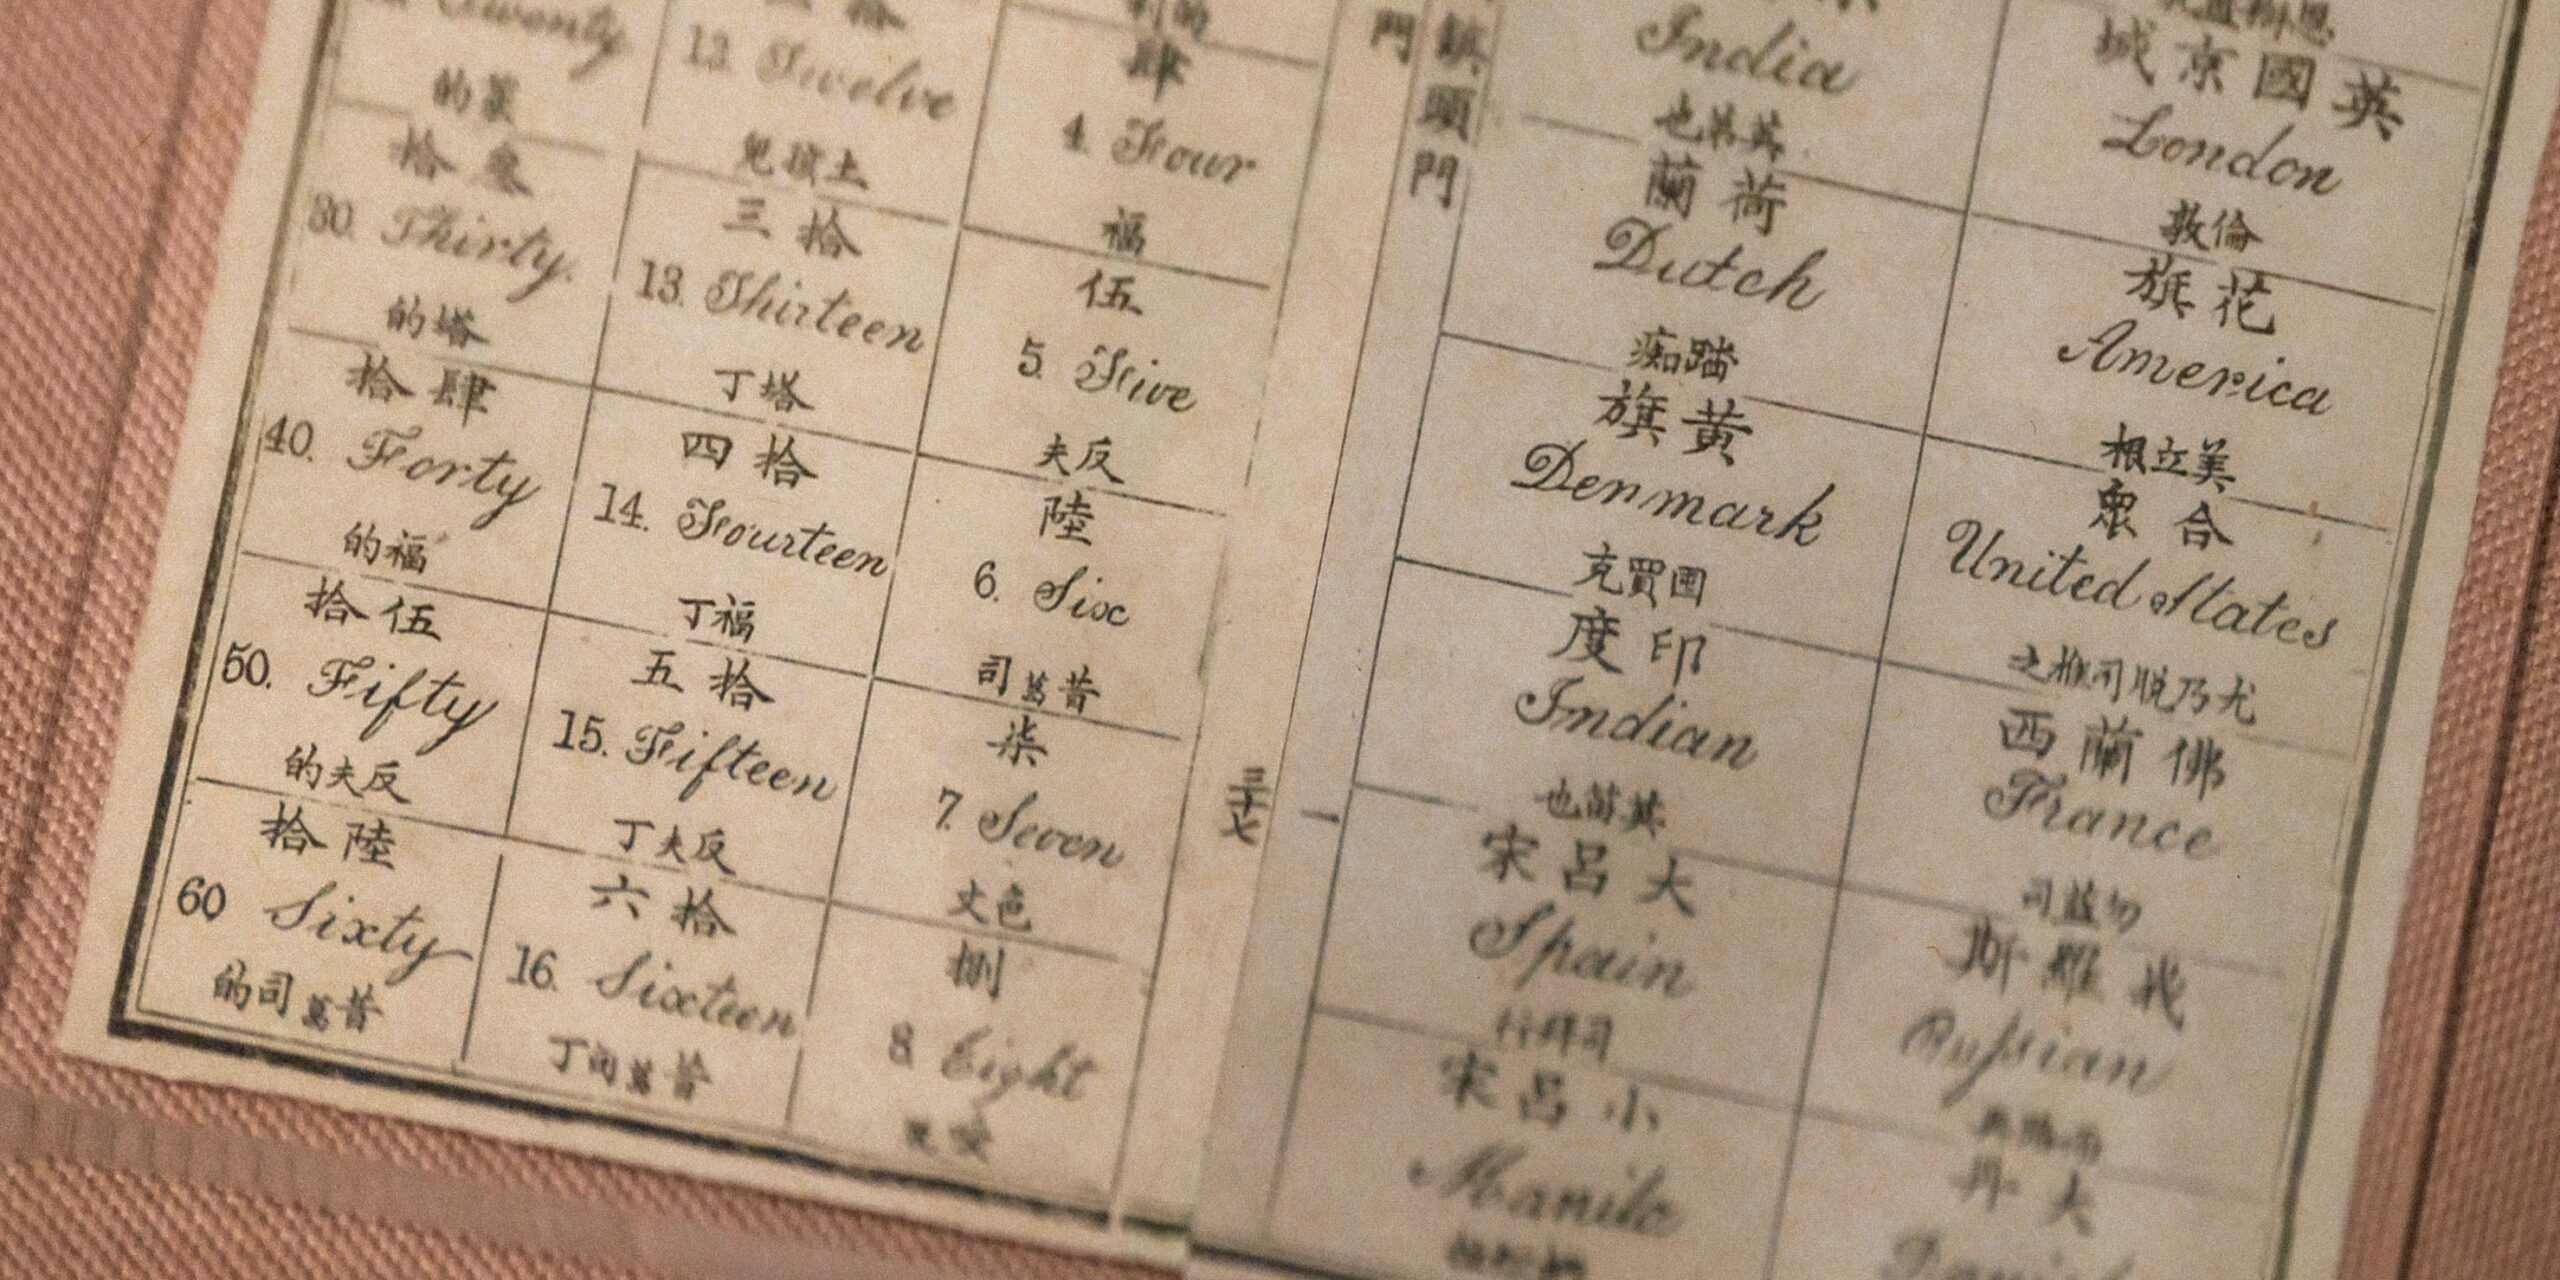 英國京城
London
倫敦
花旗
America
美立根
合衆
United States
尤乃脱司推之
佛蘭西
France
我羅斯
Russian
大丹
India
荷蘭
Dutch
踏痴
黄旗
Denmark
買克
印度
Indian
大呂宋
Spain
小呂宋
Manila
鎮頭門
一
門
三十七
肆
4. Four
福
伍
5. Five
反夫
陸
6. Six
昔葛司
柒
7. Seven
色文
捌
8. Eight
12. Twelve
拾三
13. Thirteen
塔丁
拾四
14. Fourteen
福丁
拾五
15. Fifteen
反夫丁
拾六
16. Sixteen
昔葛司丁
Twenty
叁拾
30. Thirty.
塔的
肆拾
40. Forty
福的
伍拾
50. Fifty
反夫的
陸拾
60 Sixty
昔葛司的